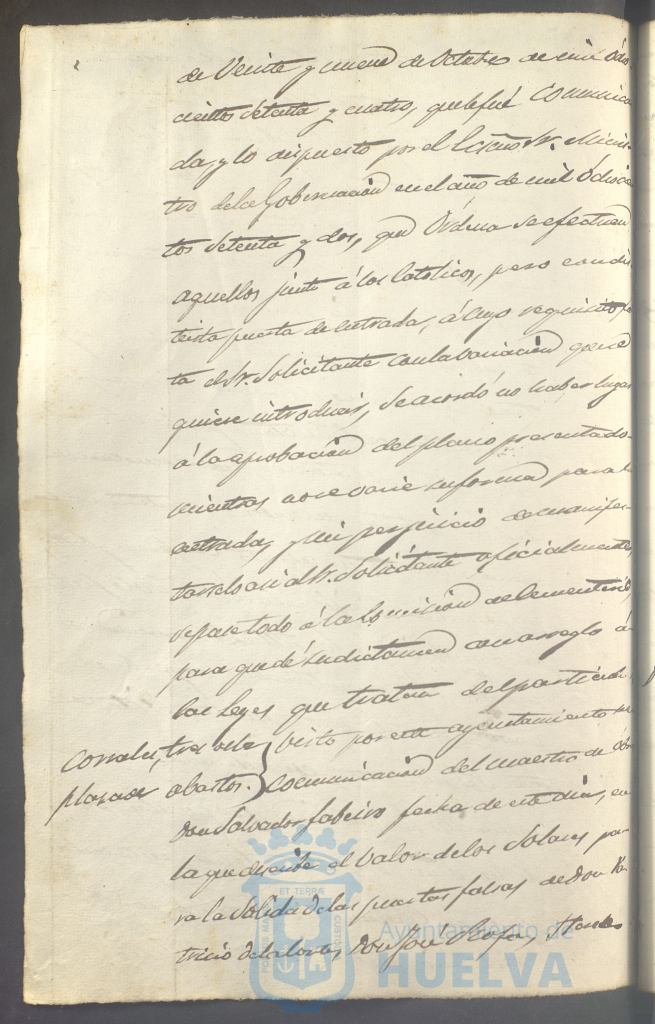 de Veinte y nueve de Octubre de mil Ocho
cientos setenta y cuatro, que le fué Comunica
da, y lo dispuesto por el Exmo Sr. Minis-
tro de la Gobernacion en el año de mil Ochocien
tos setenta y dos, que Ordena se efectuen
aquellos junto á los Catolicos, pero con dis
tinta puerta de entrada, á cuyo requisito fal
ta el Sr. Solicitante con la variacion que
quiere introducir, se acordó no haber lugar
á la aprobacion del plano presentado
mientras no se varie su forma para la
entrada, y sin perjuicio de manifes-
tarselo asi al Sr. Solicitante oficialmente,
se pase todo á la Comision de Cementerio,
para que dé su dictamen con arreglo á
las Leyes que tratan del particular.
Corrales, tres de la plaza de abastos.
Visto por este ayuntamiento la
Comunicacion del maestro de obras
Don Salvador fecha de este dia, en
la que el valor de los Solares pa
ra la Salida de las puertas falsas de Don Pa
tricio de la Corte, Don José
ET TERRÆ
CUSTODIA
Ayuntamiento de
HUELVA